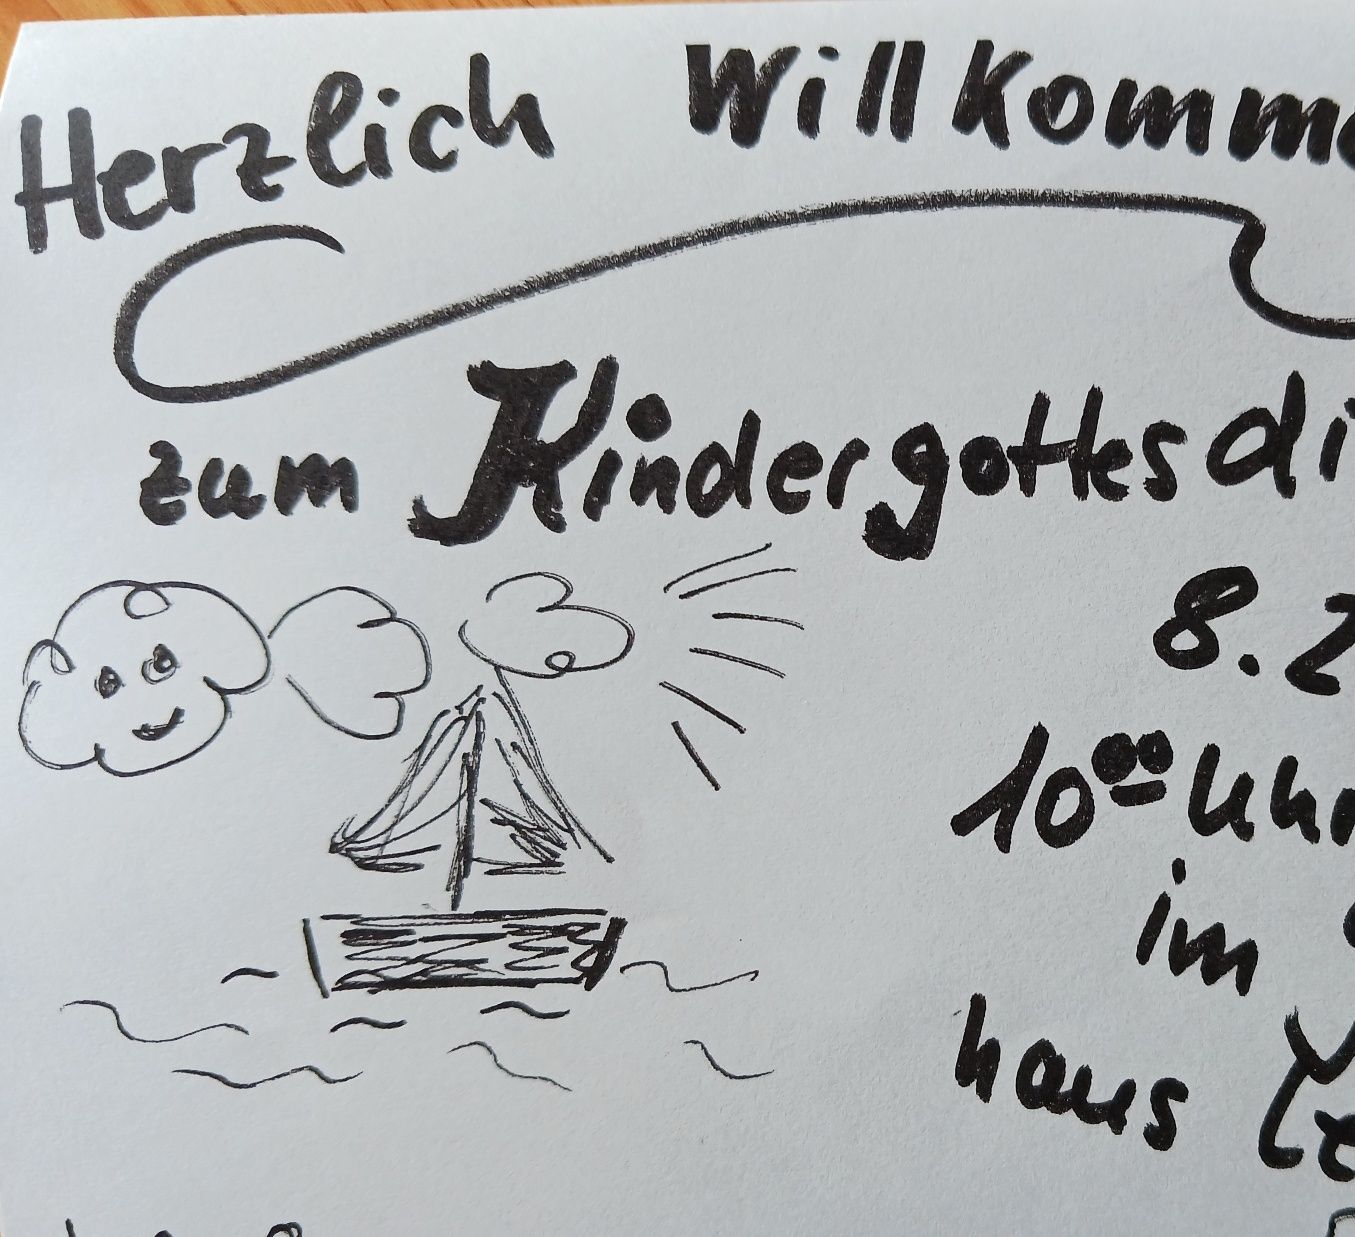 Herzlich Willkomme
zum Kindergottesdi
8.2
10⁰⁰ Uhr
im
haus